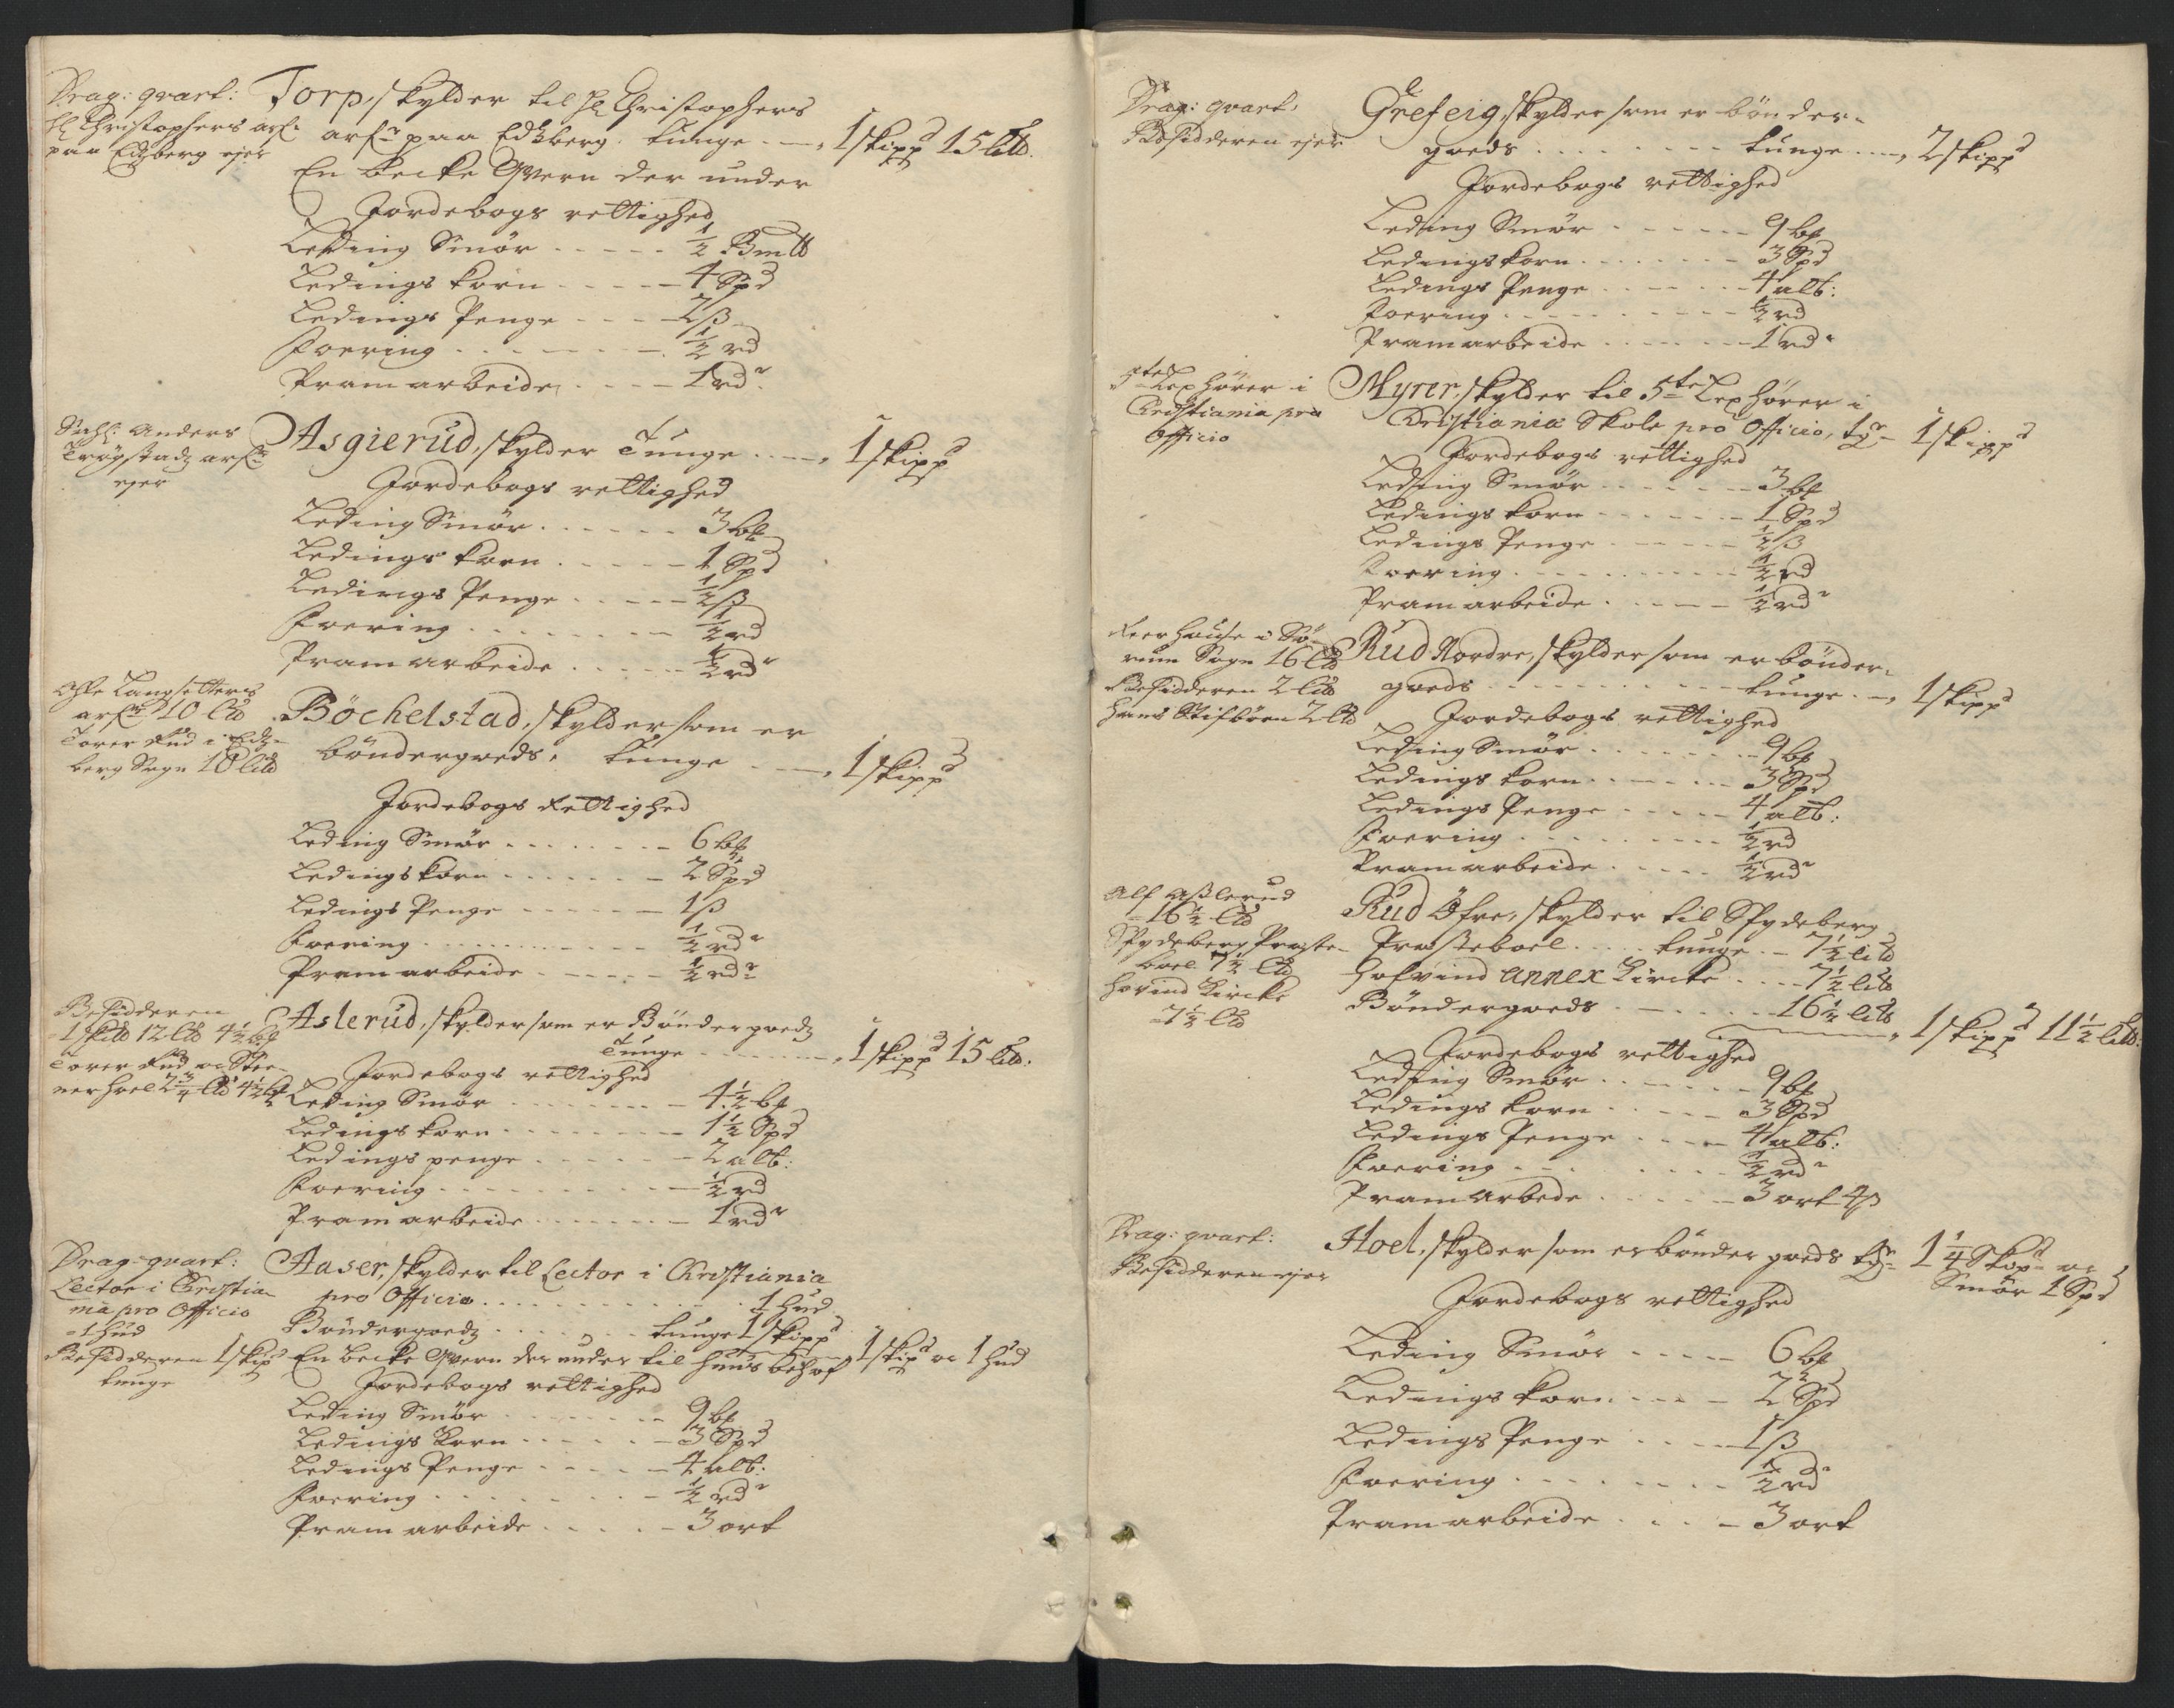 Drag: qvart:
Hl Christophers arf:
paa Edsberg ejer
Torp, skylder til Hl Christophers
arf: paa Edsberg. tunge - - - 1 skippd 15 lltd.
En becke Qvern der under
Jordebogs rettighed
Leding Smör - - - - - ½ Bmtt
Ledings korn - - - - 4 Spd
Ledings Penge - - - 2 ß
Foering - - - - - - - ½ rd
Pramarbeide - - - - 1 rdr
Sahl: Anders
Trögstads arf:
ejer
Asgierud, skylder Tunge - - - 1 skippd
Jordebogs rettighed
Leding Smör - - - - - - 3 bf
Ledings korn - - - - - 1 Spd
Ledings Penge - - - - - ½ ß
Foering - - - - - - - - ½ rd
Pramarbeide - - - - - ½ rdr
Langsetters
arf: 10 ltd
Torer Rud i Eds-
berg Sogn 10 ltd
Böchelstad, skylder som er
böndergods, tunge - - - 1 skippd
Jordebogs Rettighed
Leding Smör - - - - - - - 6 bf
Ledings korn - - - - - - - 2 Spd
Ledings Penge - - - - - - 1 ß
Foering - - - - - - - - - ½ rdr
Pramarbeide - - - - - - ½ rdr
Besidderen
1 skltd 12 ltd 4½ bf
Torer Rud oc Stee-
nerhoel 2¾ ltd 4½ bf
Aslerud, skylder som er Bönder goeds
Tunge - - - - - - - 1 skippd 15 ltd.
Jordebogs rettighed
Leding Smör - - - - - - - 4½ bf
Ledings korn - - - - - - - 1½ Spd
Ledings penge - - - - - - 2 alb:
Foering - - - - - - - - - ½ rd
Pramarbeide - - - - - - - 1 rdr
Drag-qvart:
Lector i Christia-
nia pro Officio
- 1 hud
Besidderen 1 skipd
tunge
Aaser, skylder til Lector i Christiania
pro Officio - - - - - - - - 1 hud
Böndergoeds - - - - - - tunge 1 skippd
En becke Qvern der under til huus behof 1 skipd oc 1 hud
Jordebogs rettighed
Leding Smör - - - - - - - 9 bf
Ledings Korn - - - - - - 3 Spd
Ledings Penge - - - - - 4 alb:
Foering - - - - - - - - - ½ rdr
Pram arbeide - - - - - - 3 ort
Drag: qvart:
Besidderen ejer
Grefeig, skylder som er bönder-
goeds - - - - - - - - - tunge - - - 2 skippd
Jordebogs rettighed
Leding Smör - - - - - - 9 bf
Ledings korn - - - - - - - 3 Spd
Ledings Penge - - - - - - 4 alb:
Foering - - - - - - - - - ½ rd
Pramarbeide - - - - - - - 1 rdr
5te Lexhörer i
Christiania pro
Officio
Myrer, skylder til 5te Lexhörer i
Christiania Skole pro Officio, tge 1 skippd
Jordebogs rettighed
Leding Smör - - - - - - 3 bf
Ledings korn - - - - - - 1 Spd
Ledings Penge - - - - - - ½ ß
Foering - - - - - - - - - ½ rd
Pramarbeide - - - - - - ½ rdr
i Sö-
rum Sogn 16 ltd
Besidderen 2 ltd
Hans Stifbörn 2 ltd
Rud Nordre, skylder som er bönder-
goeds - - - - - - - - - tunge - - 1 skippd
Jordebogs rettighed
Leding Smör - - - - - - - 9 bf
Ledings korn - - - - - - - 3 Spd
Ledings Penge - - - - - - 4 alb:
Foering - - - - - - - - - ½ rd
Pramarbeide - - - - - - ½ rdr
Alf Asslerud
- 16½ ltd
Spydeberg Preste-
boel 7½ ltd
Hovind Kircke
- 7½ ltd
Rud Öfre, skylder til Spydeberg
Præsteboel - - - - tunge - - 7½ ltd
Hofvind Annex Kircke - - - - 7½ ltd
Böndergoeds - - - - - - - 16½ ltd
1 skippd 11½ ltd:
Jordebogs rettighed
Leding Smör - - - - - - - 9 bf
Ledings korn - - - - - 3 Spd
Ledings Penge - - - - - 4 alb:
Foering - - - - - - - - - ½ rdr
Pramarbede - - - - - - 3 ort 4 ß
Drag: qvart:
Besidderen ejer
Hoel, skylder som er bönder goeds tge 1¼ Skpd oc
Smör 1 Spd
Jordebogs rettighed
Leding Smör - - - - - 6 bf
Ledings korn - - - - 2 Spd
Ledings Penge - - - - 1 ß
Foering - - - - - - - - ½ rdr
Pramarbeide - - - - 3 ort